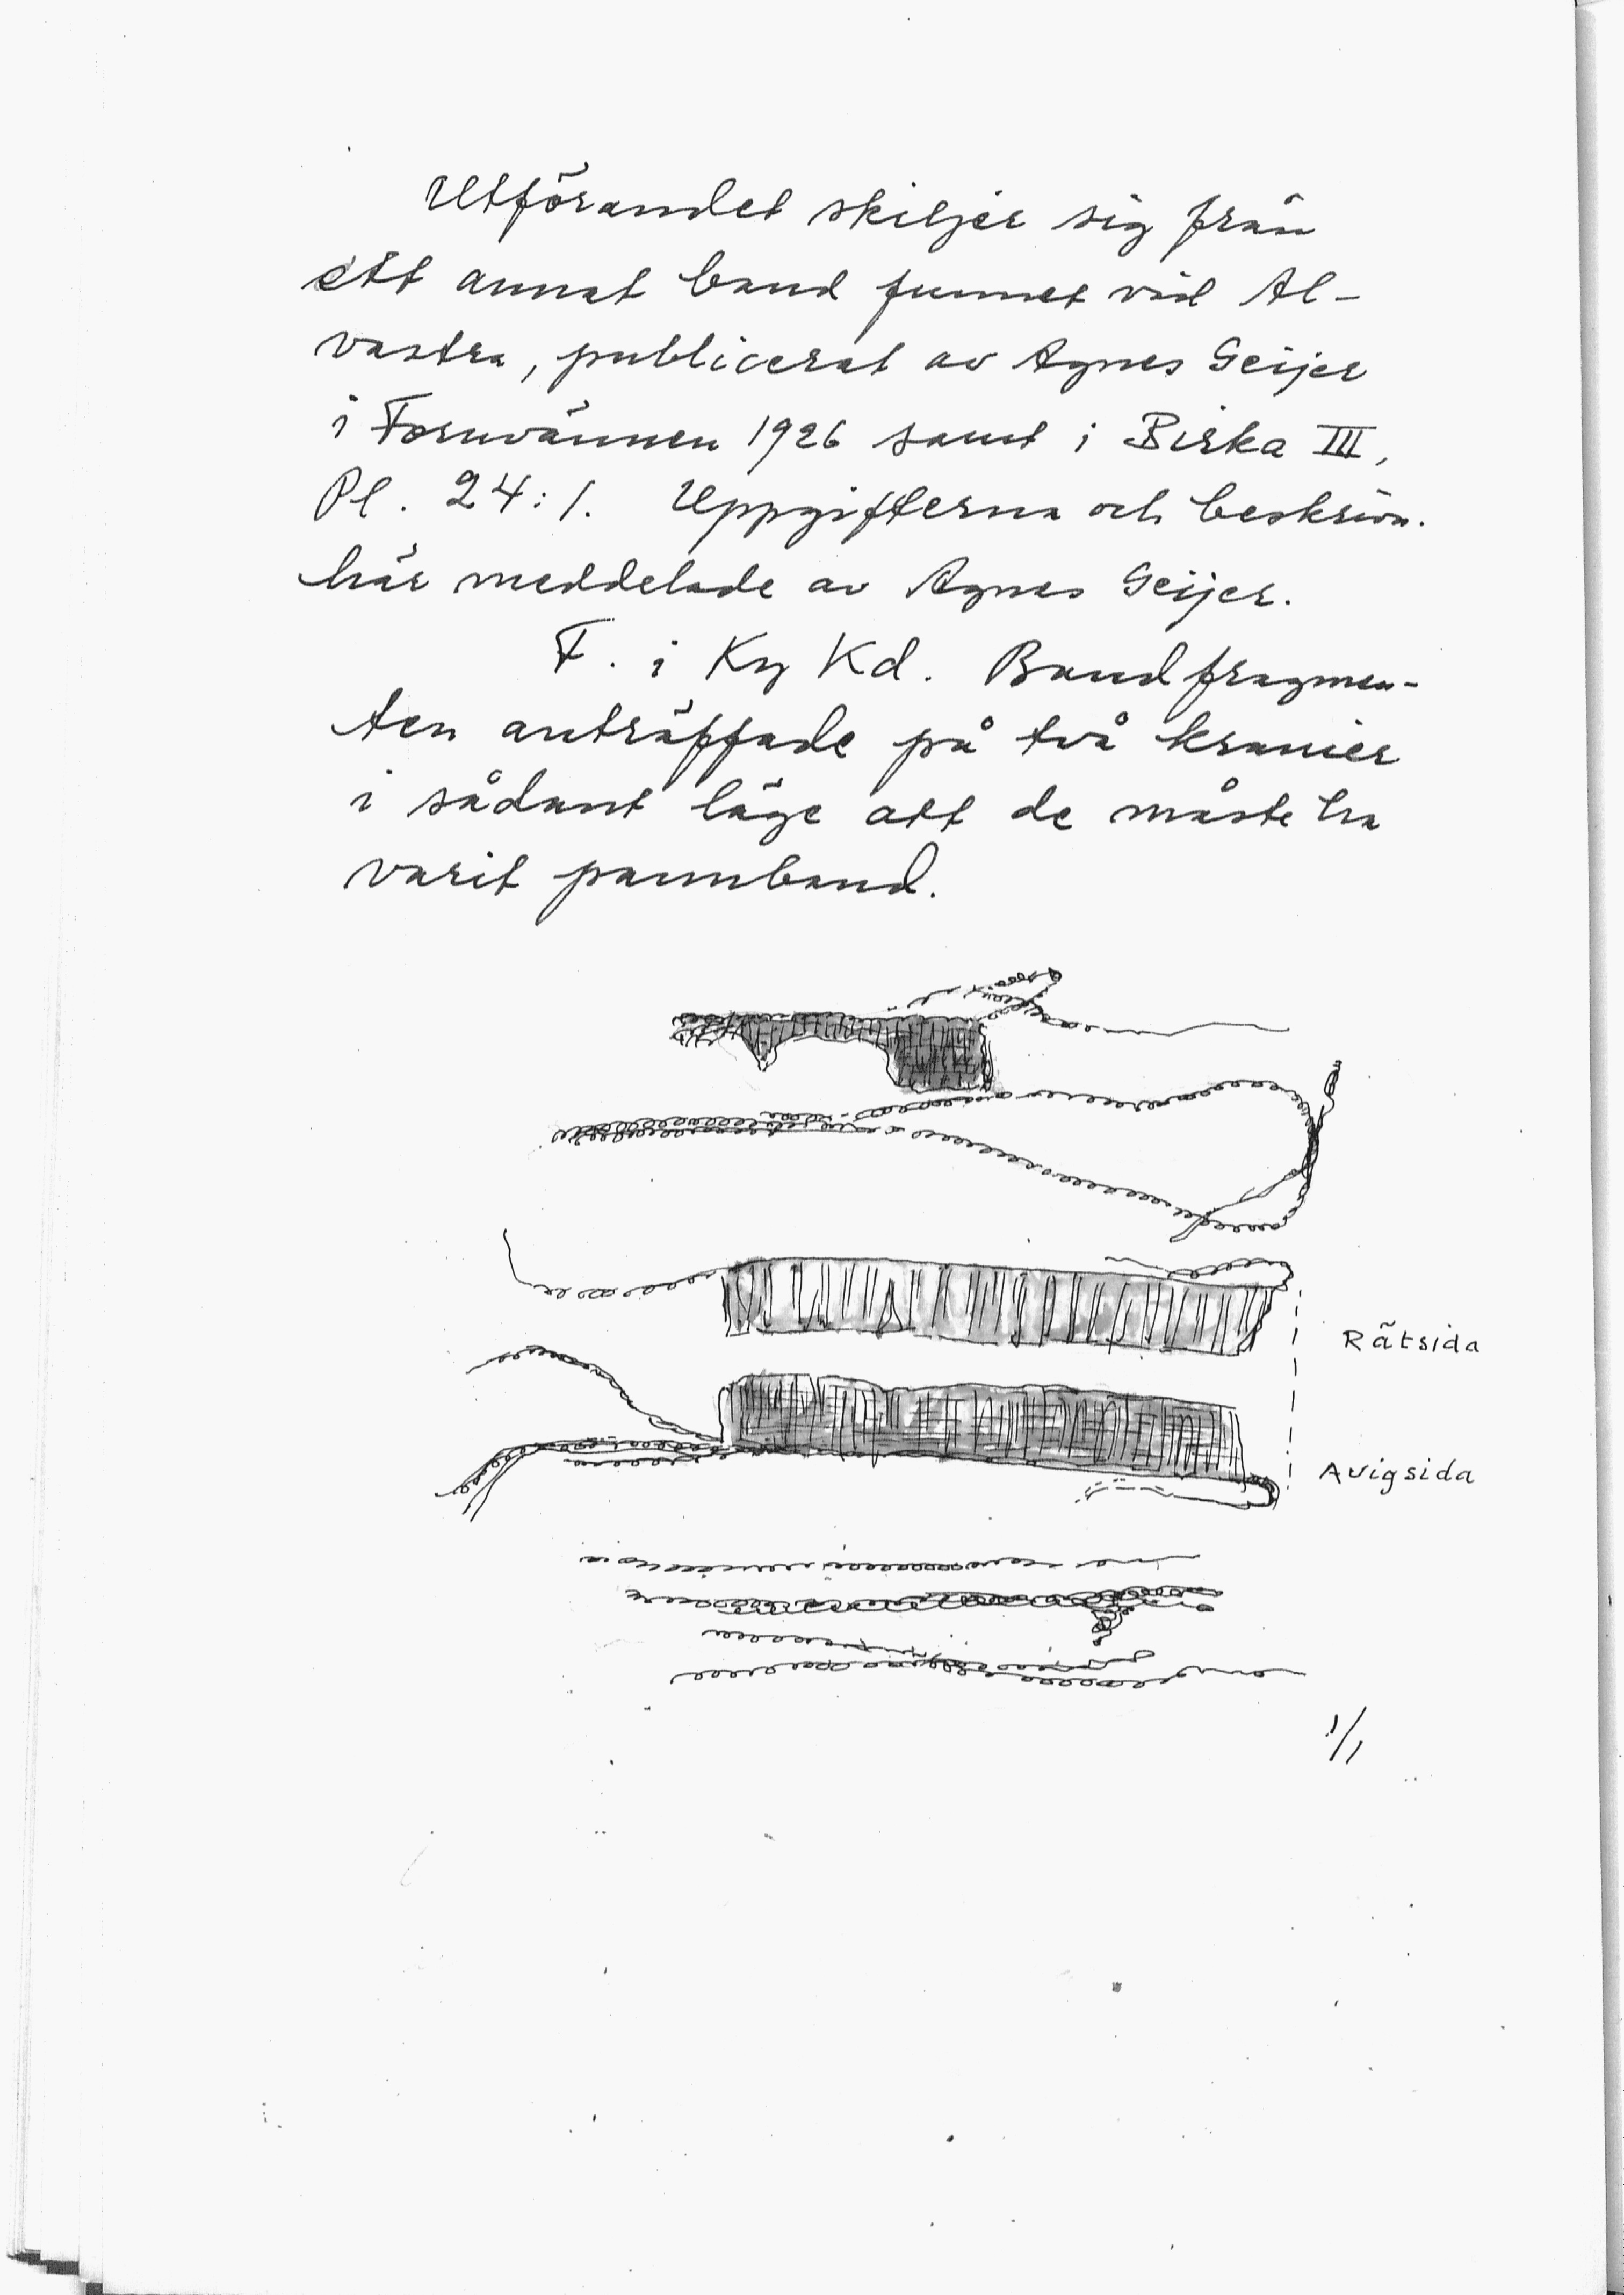 Utförandet skiljer sig från
ett annat band funnet vid Al-
vastra, publicerat av Agnes Geijer
i Fornvännen 1926 samt i Birka III,
Pl. 24:1. Uppgifterna och beskrivn.
här meddelade av Agnes Geijer.
F. i Kg Kd. Bandfragmen-
ten anträffade på två kranier
i sådant läge att de måste ha
varit pannband.
Rätsida
Avigsida
1/1